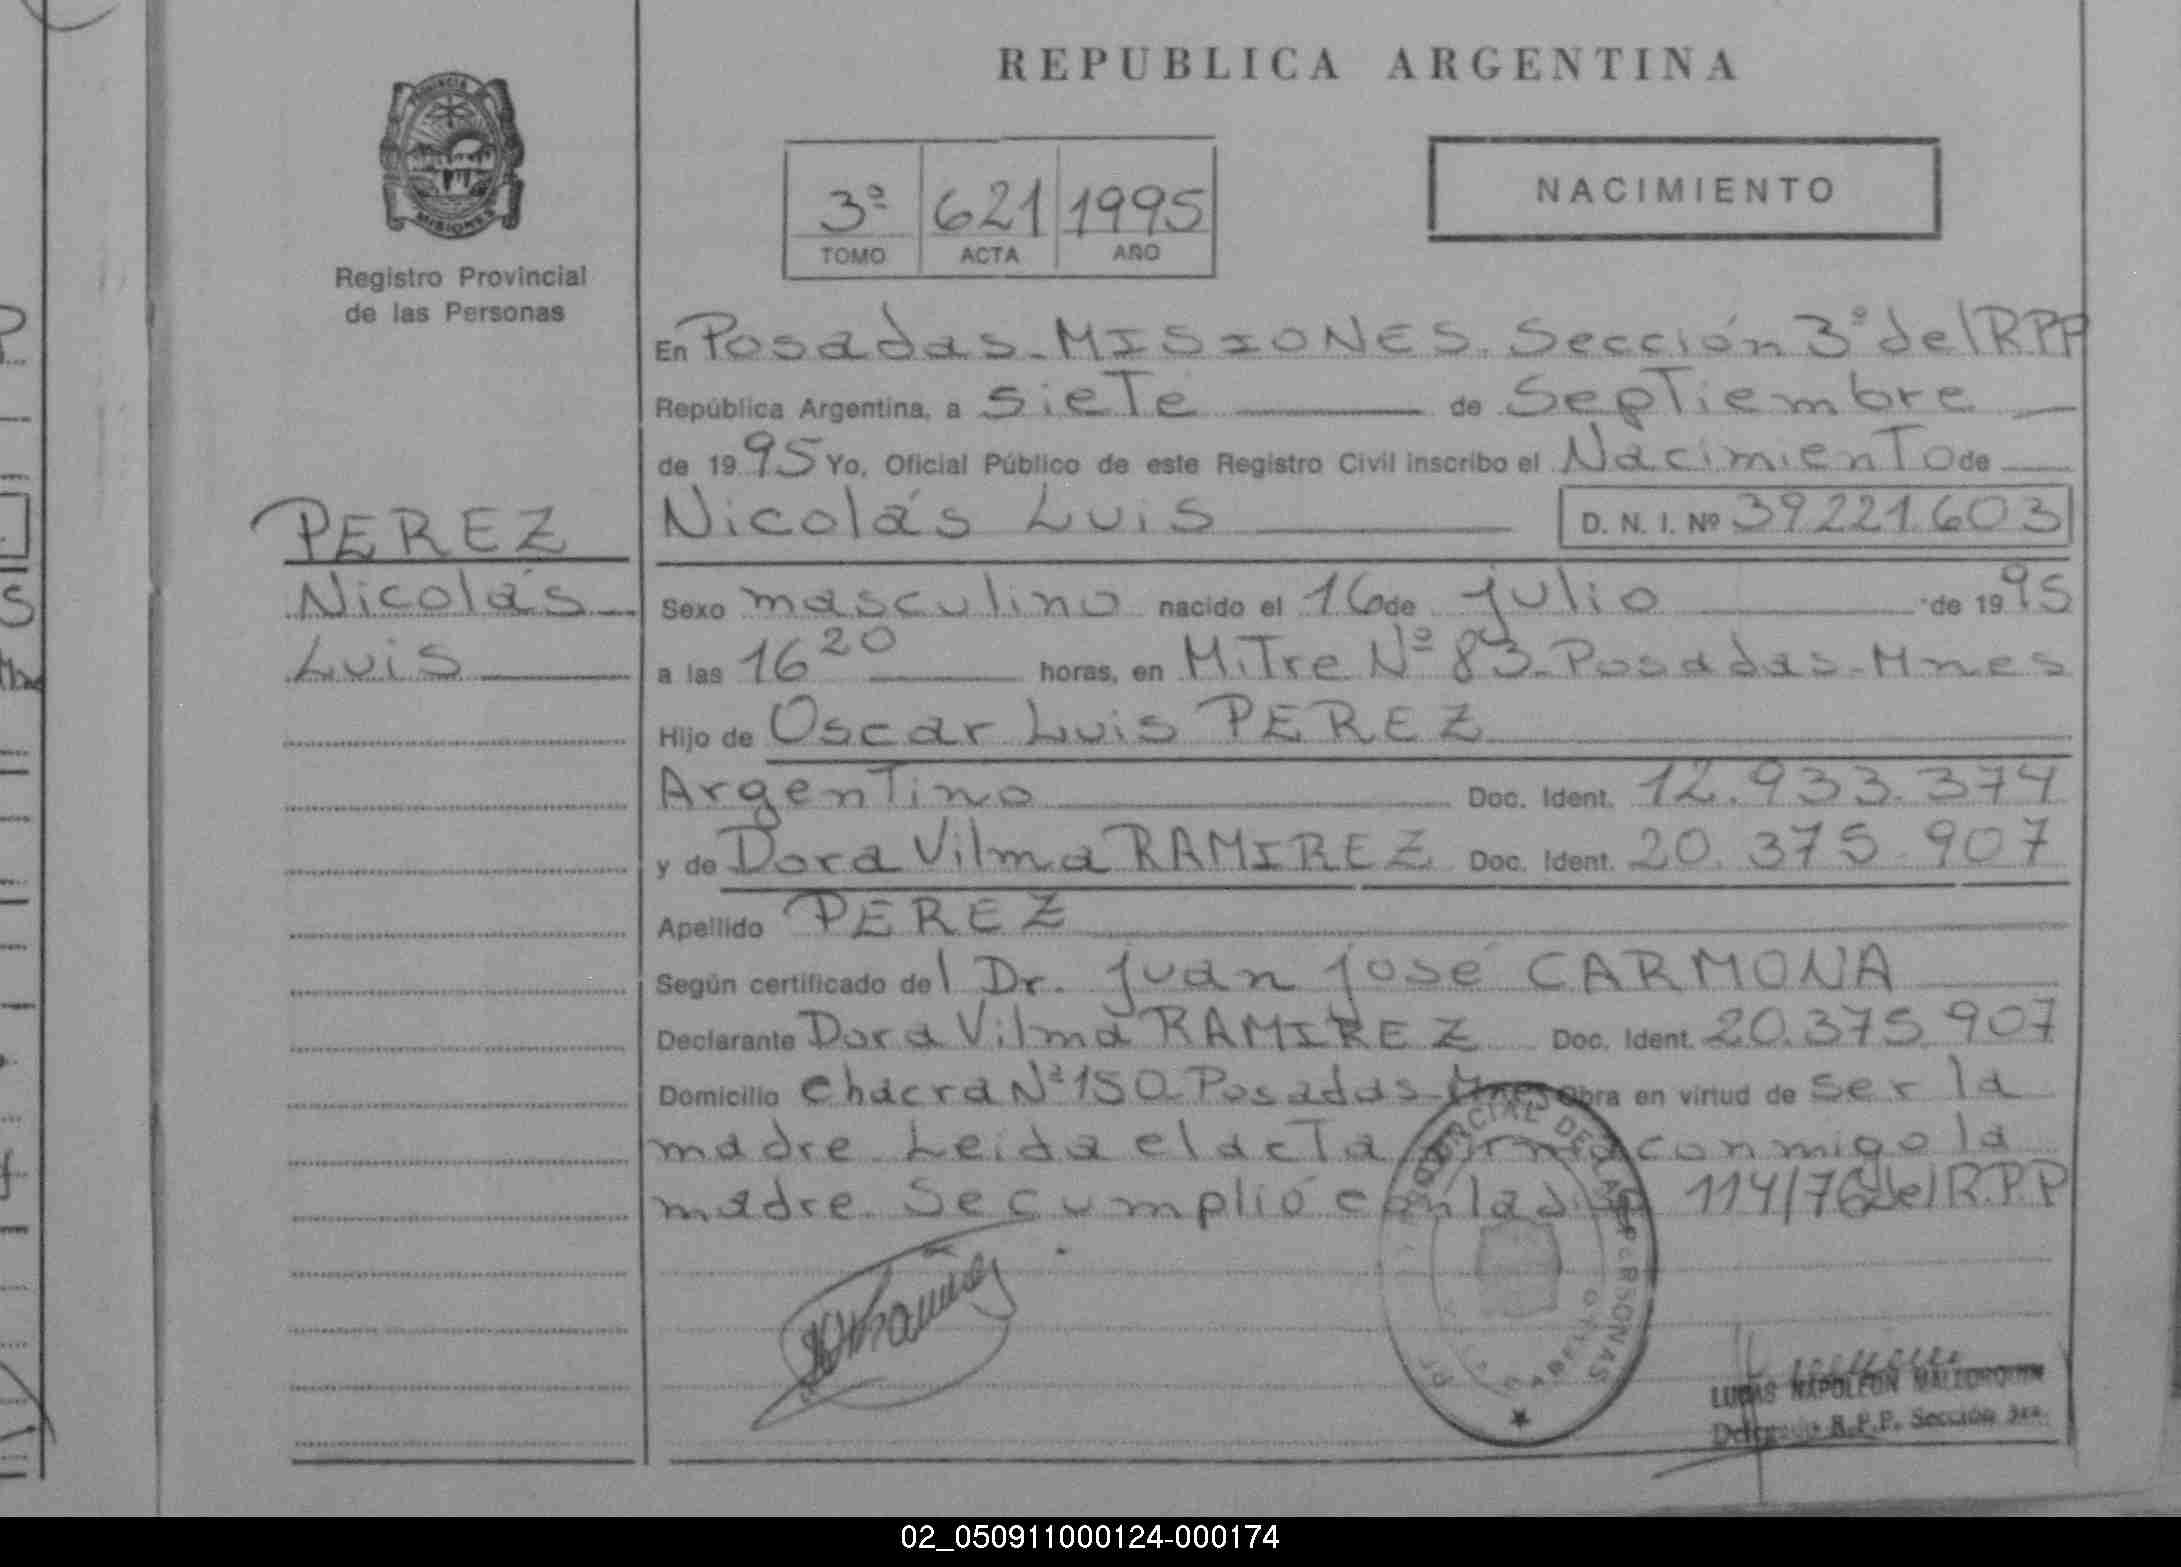 REPUBLICA ARGENTINA
PROVINCIA
MISIONES
Registro Provincial
de las Personas
3ª 621 1995
TOMO ACTA AÑO
NACIMIENTO
En Posadas-MISIONES. Sección 3ª del R.P.P
República Argentina, a sieTe de SepTiembre
de 1995 Yo, Oficial Público de este Registro Civil inscribo el NacimienTo de
PEREZ
Nicolás
Luis
Nicolás Luis D. N. I. Nº 39221.603
Sexo masculino nacido el 16 de julio de 1995
a las 16 20 horas, en MiTre Nº 83-Posadas-Mnes
Hijo de Oscar Luis PEREZ
ArgenTino Doc. Ident. 12.933.374
y de Dora Vilma RAMIREZ Doc. Ident. 20.375.907
Apellido PEREZ
Según certificado del Dr. Juan José CARMONA
Declarante Dora Vilma RAMIREZ Doc. Ident. 20.375.907
Domicilio chacra Nº 150-Posadas-Mnes Obra en virtud de ser la
madre. Leida el acTa firma conmigo la
madre. Se cumplió con la disp 114/76 del R.P.P
DE LAS PERSONAS
LUCAS NAPOLEON MALLORQUIN
Delegado R.P.P. Sección 3ra.
02_050911000124-000174